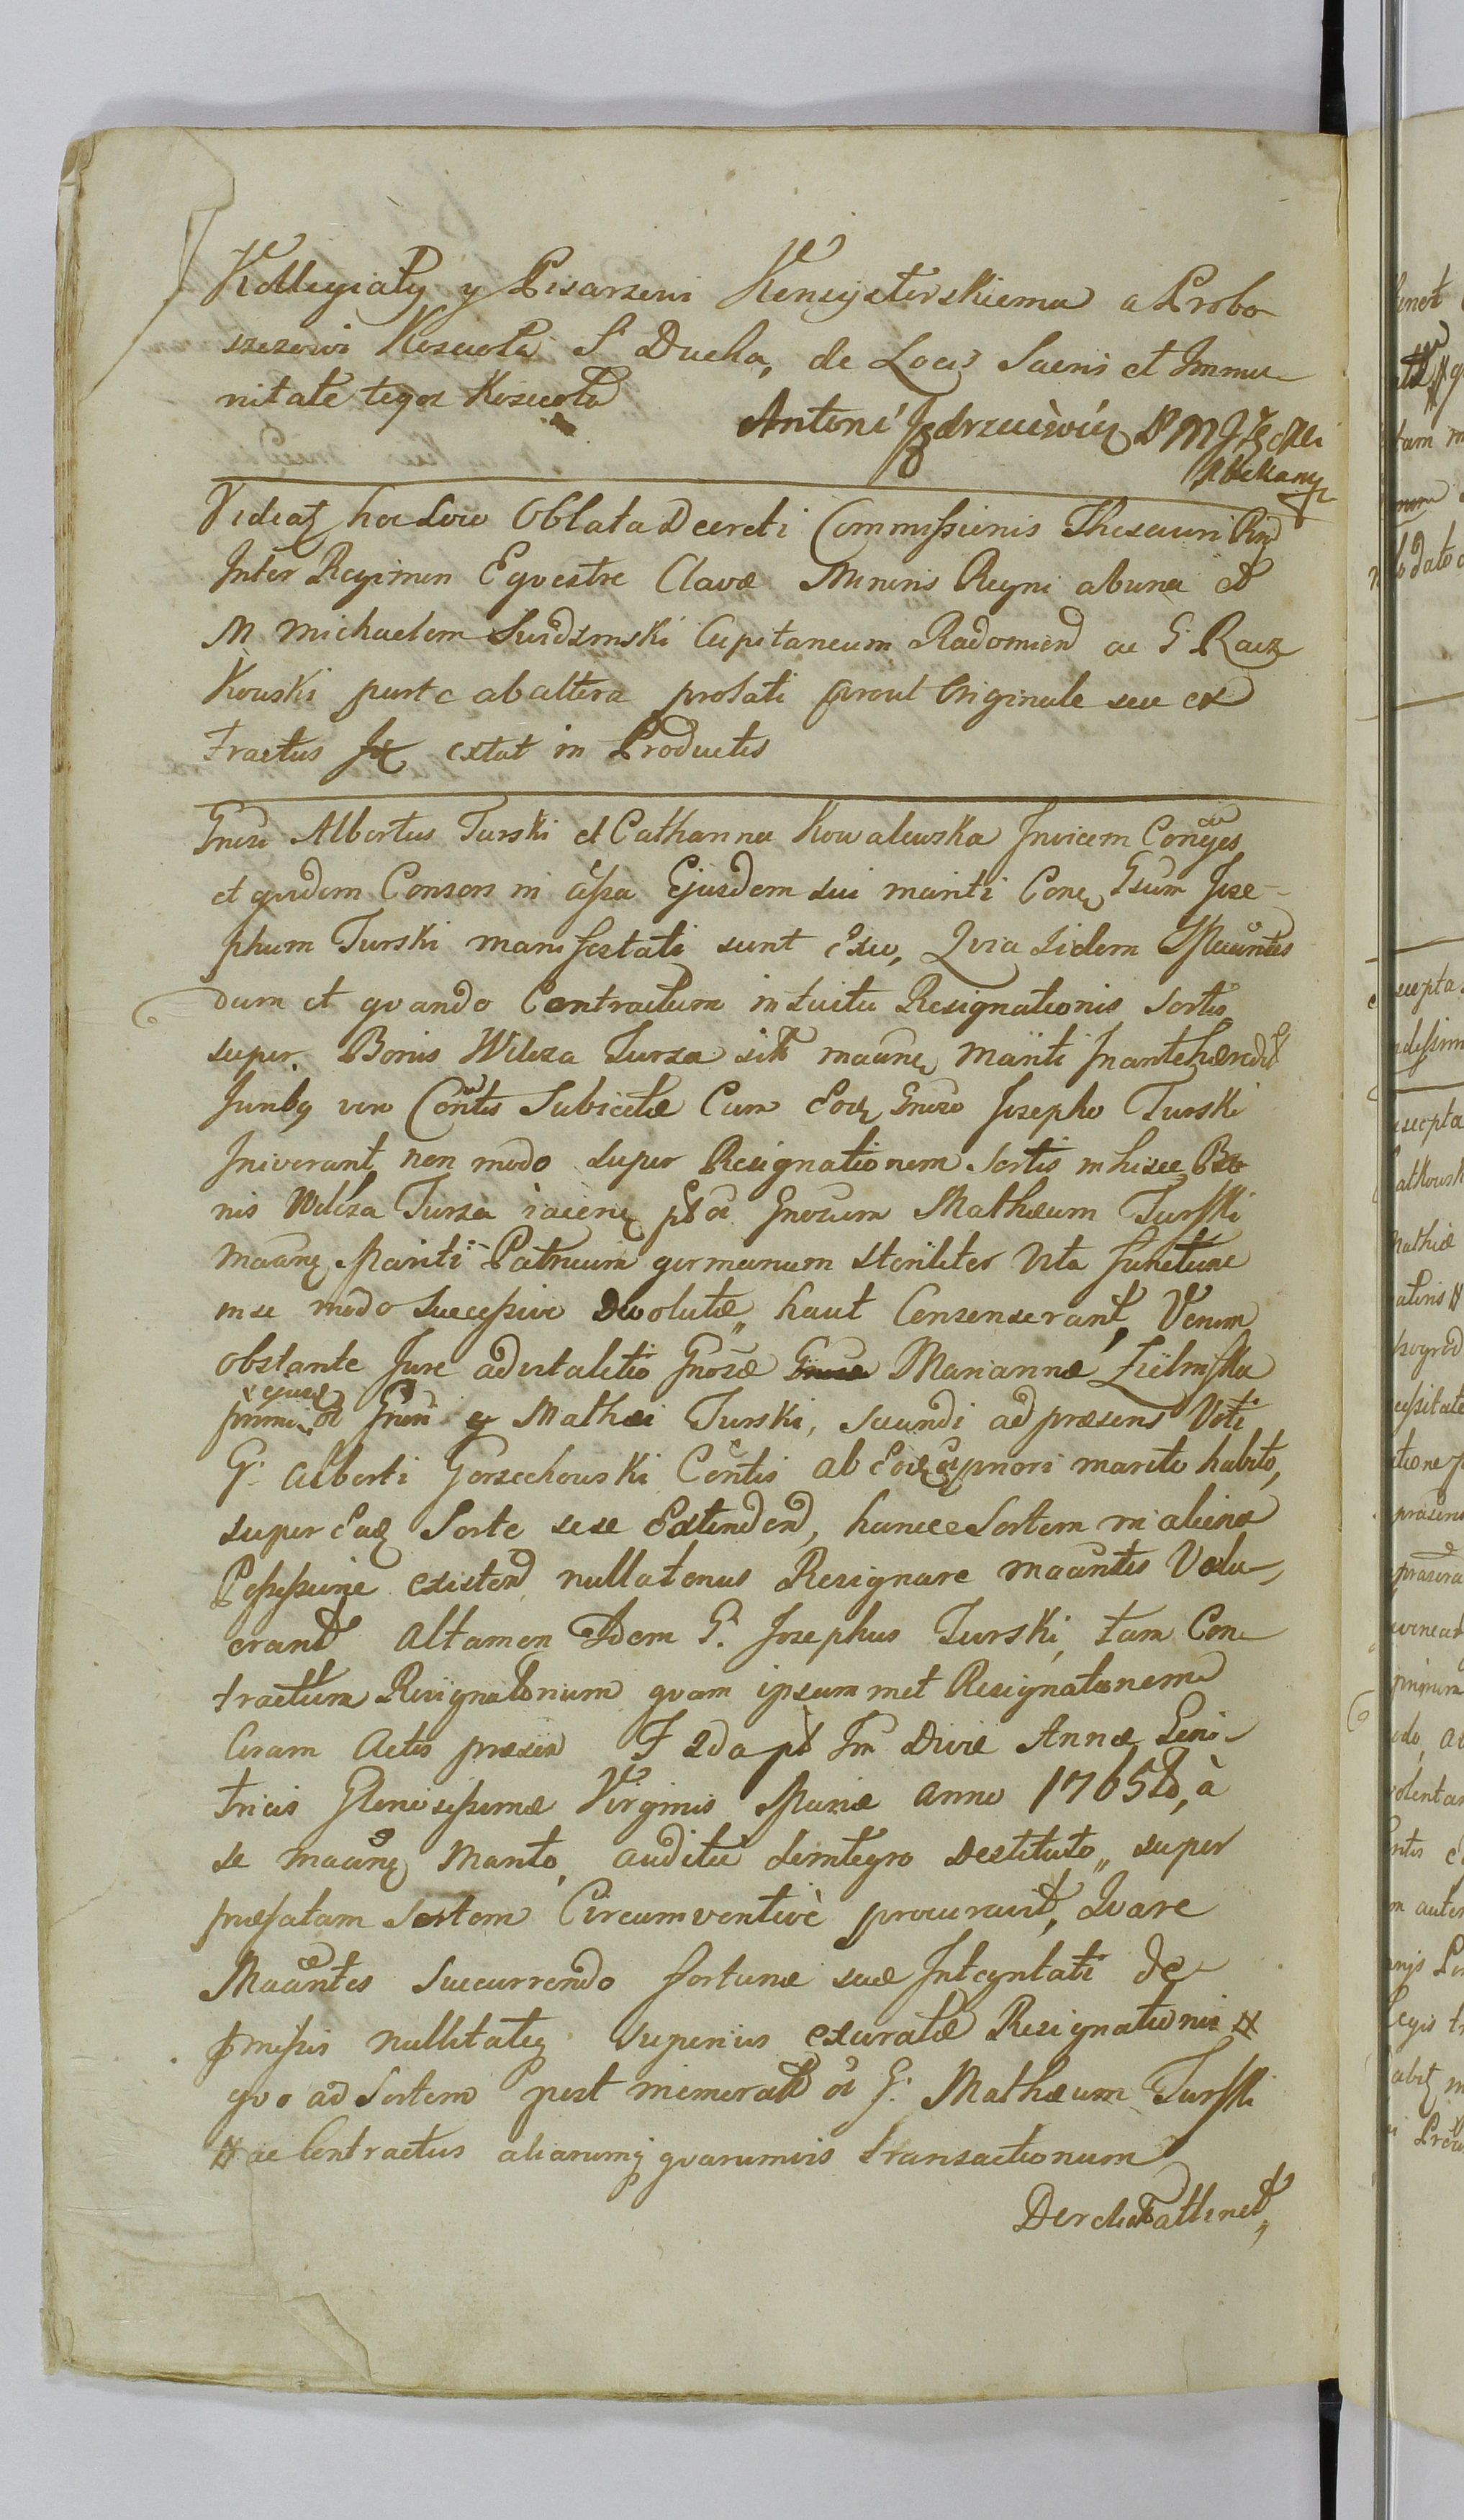 Kollegiaty y Pisarzewi Konsysterskiemu a Probo
szczowi Kosciola S Ducha, de Locis Sacris et Immu
nitate tegoz Kosciola
Antoni Jędrzeiewicz
Videatz hoc Loco Oblata Decreti Commissionis Thesauri Rni
Inter Regimen Eqvestre Clavæ Minoris Regni ab una et
M Michaelem Swidzinski Capitaneum Radomien ac G Racz
kowski parte ab altera prolati prout Originale seu ex
tractus extat in Productis
Gnesi Albertus Turski et Catharina Kowalewska Invicem Coniges
et qvidem Consors in assa Ejusdem sui mariti Conq Gsum Jose-
phum Turski manifestati sunt Exu, Qvia iidem Maantes
dum et qvando Contractum intuitu Resignationis Sortis
super Bonis Wilcza Turza maanq mariti
vero Contis Subiectæ Cum Eodq Gnoso Josepho Turski
Iniverant non modo super Resignationem Sortis in hisce Bo
nis Wilcza Turza iacenq Gnosum Mathæum Turski
maanq Mariti Patruum germanum steriliter Vita functum
in se modo successive Devolutæ, haut Consenserant, Verum
obstante Jure advitalitio Gnosæ Mariannæ Zielinska
primi Mathæi Turski, Secundi ad præsens Voti
G: Alberti Gorzechowski Contis ab priori marito habito,
super Eadq Sorte sese Extenden, hancce Sortem in aliena
Possessione existen nullatenus Resignare maantes Volu-
erant Attamen Idem G: Josephus Turski, tam Con
tractum Resignatorium qvam ipsammet Resignationem
Coram Actis præsen F 2da Divæ Annæ Geni-
tricis Gloriosissimæ Virginis Mariæ anno 1765to, à
se maanq Marito, auditu deintegro Destituto, super
præfatam Sortem Circumventivè procuravit, Qvare
Maantes Succurrendo fortunæ suæ Integritati de
præmissis nullitateq superius exaratæ Resignationis #
qvo ad Sortem post memorat G: Mathæum Turski
# ac Contractus aliarumq qvarumvis transactionum